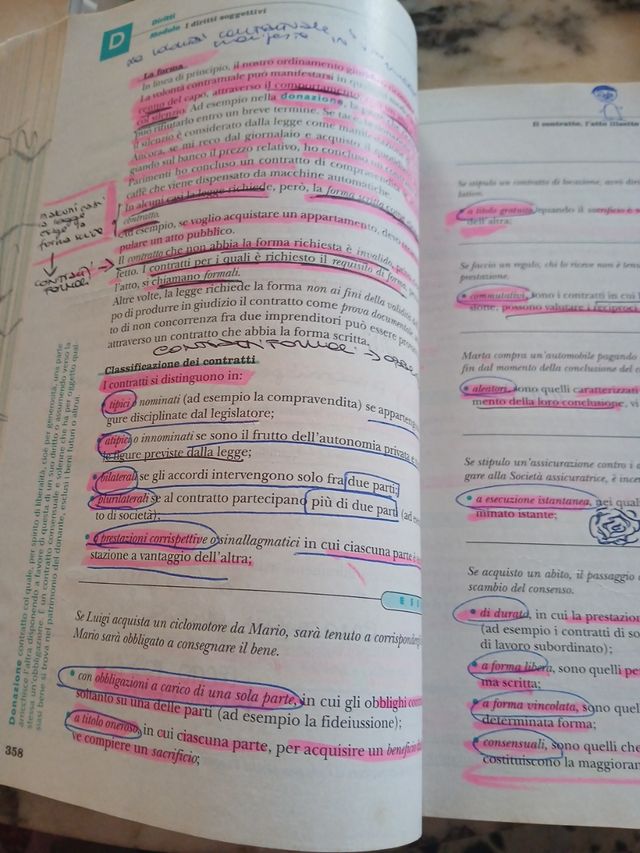 D
Diritti
Modulo I diritti soggettivi
La forma
In linea di principio, il nostro ordinamento
La volontà contrattuale può manifestarsi in
cenno del capo, attraverso il comportamento
col silenzio. Ad esempio nella donazione, la
può rifiutarlo entro un breve termine. Se
il silenzio è considerato dalla legge come
Ancora, se mi reco dal giornalaio e acquisto il
giando sul banco il prezzo relativo, ho concluso un
Parimenti ho concluso un contratto di
caffè che viene dispensato da macchine automatiche
In alcuni casi la legge richiede, però, la forma scritta
contratto.
Ad esempio, se voglio acquistare un appartamento, devo
pulare un atto pubblico.
Il contratto che non abbia la forma richiesta è invalido,
fetto. I contratti per i quali è richiesto il requisito di forma,
l'atto, si chiamano formali.
Altre volte, la legge richiede la forma non ai fini della validità
po di produrre in giudizio il contratto come prova documentale
to di non concorrenza fra due imprenditori può essere
attraverso un contratto che abbia la forma scritta.
CONTRATTI FORMALI →
Classificazione dei contratti
I contratti si distinguono in:
• tipici o nominati (ad esempio la compravendita) se
gure disciplinate dal legislatore;
• atipici o innominati se sono il frutto dell'autonomia privata
le figure previste dalla legge;
• bilaterali se gli accordi intervengono solo fra due parti;
• plurilaterali se al contratto partecipano più di due parti (ad
to di società);
• a prestazioni corrispettive o sinallagmatici in cui ciascuna parte
stazione a vantaggio dell'altra;
Se Luigi acquista un ciclomotore da Mario, sarà tenuto a
Mario sarà obbligato a consegnare il bene.
• con obbligazioni a carico di una sola parte, in cui gli obblighi
soltanto su una delle parti (ad esempio la fideiussione);
• a titolo oneroso, in cui ciascuna parte, per acquisire un beneficio
ve compiere un sacrificio;
358
Donazione contratto col quale, per spirito di liberalità, cioè per generosità, una parte
arricchisce l'altra disponendo a favore di questa di un suo diritto o assumendo verso la
stessa un'obbligazione. È un contratto consensuale e solenne che ha per oggetto qual-
siasi bene si trova nel patrimonio del donante, esclusi i beni futuri o altrui.
Il contratto, l'atto illecito
Se stipulo un contratto di locazione,
• a titolo gratuito, quando il sacrificio è
dell'altra;
Se faccio un regalo, chi lo riceve non è
prestazione.
• commutativi, sono i contratti in cui
possono valutare i reciproci
Marta compra un'automobile pagando
fin dal momento della conclusione del
• aleatori, sono quelli caratterizzati
mento della loro conclusione,
Se stipulo un'assicurazione contro i
gare alla Società assicuratrice, è
• a esecuzione istantanea, nei quali
minato istante;
Se acquisto un abito, il passaggio
scambio del consenso.
• di durata, in cui la prestazione
(ad esempio i contratti di
di lavoro subordinato);
• a forma libera, sono quelli
ma scritta;
• a forma vincolata, sono
determinata forma;
• consensuali, sono quelli che
costituiscono la maggioran